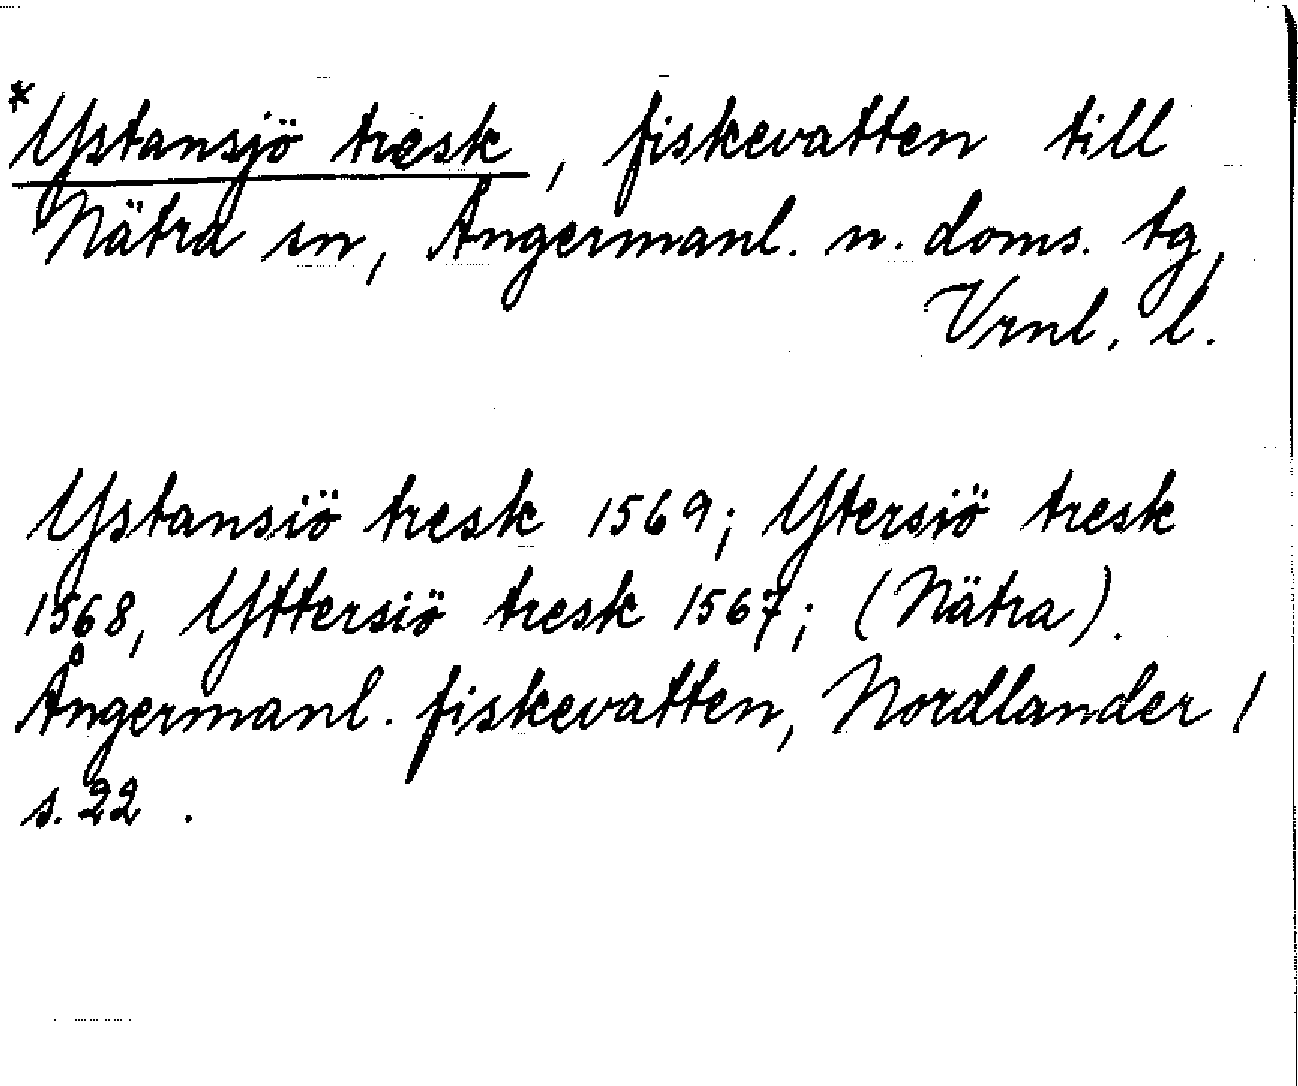 *Ystansjö tresk, fiskevatten till
Nätra sn, Ångermanl. n. doms. tg,
Vrnl. l.
Ystansiö tresk 1569; Ytersiö tresk
1568, Yttersiö tresk 1567; (Nätra).
Ångermanl. fiskevatten, Nordlander 1
s. 22 .